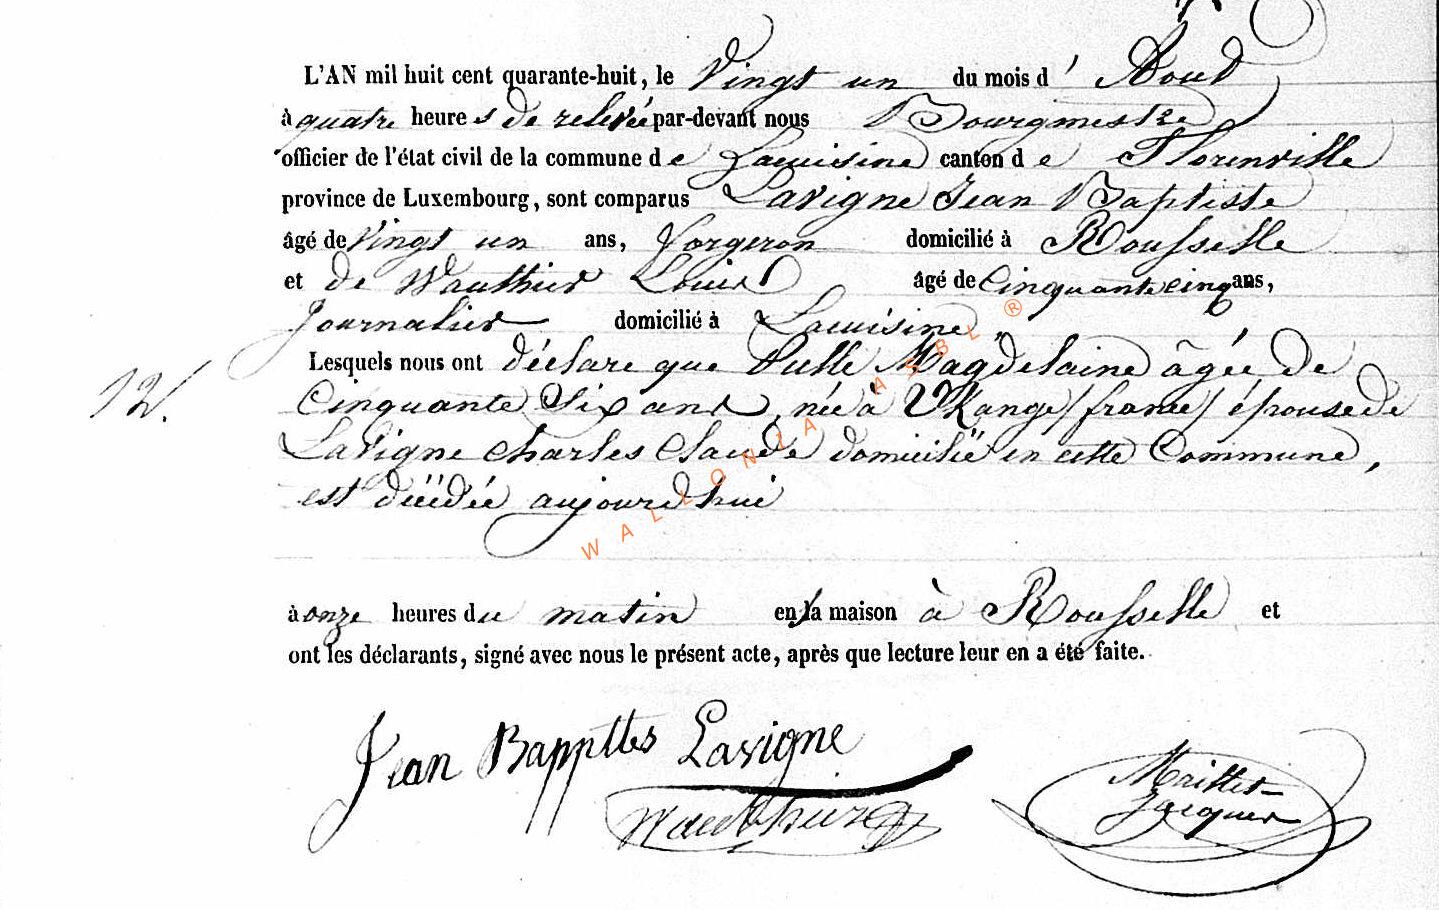 L'AN mil huit cent quarante-huit, le Vingt un du mois d' Aout
à quatre heures de relevée par-devant nous Bourgmestre
officier de l'état civil de la commune de Lacuisine canton de Florenville
province de Luxembourg, sont comparus Lavigne Jean Baptiste
âgé de Vingt un ans, forgeron domicilié à Rousselle
et de Wauthier Louis âgé de Cinquante cinq ans,
Journalier domicilié à Lacuisine
Lesquels nous ont déclare que Magdelaine âgée de
12.
Cinquante Six ans, née à Ukange (france) épouse de
Lavigne Charles Claude domicilié en cette Commune,
est décédée aujourd'hui
à onze heures du matin en la maison à Rousselle et
ont les déclarants, signé avec nous le présent acte, après que lecture leur en a été faite.
Jean Bappttes Lavigne
Maillet
Jacques
WALLONIA ASBL ®